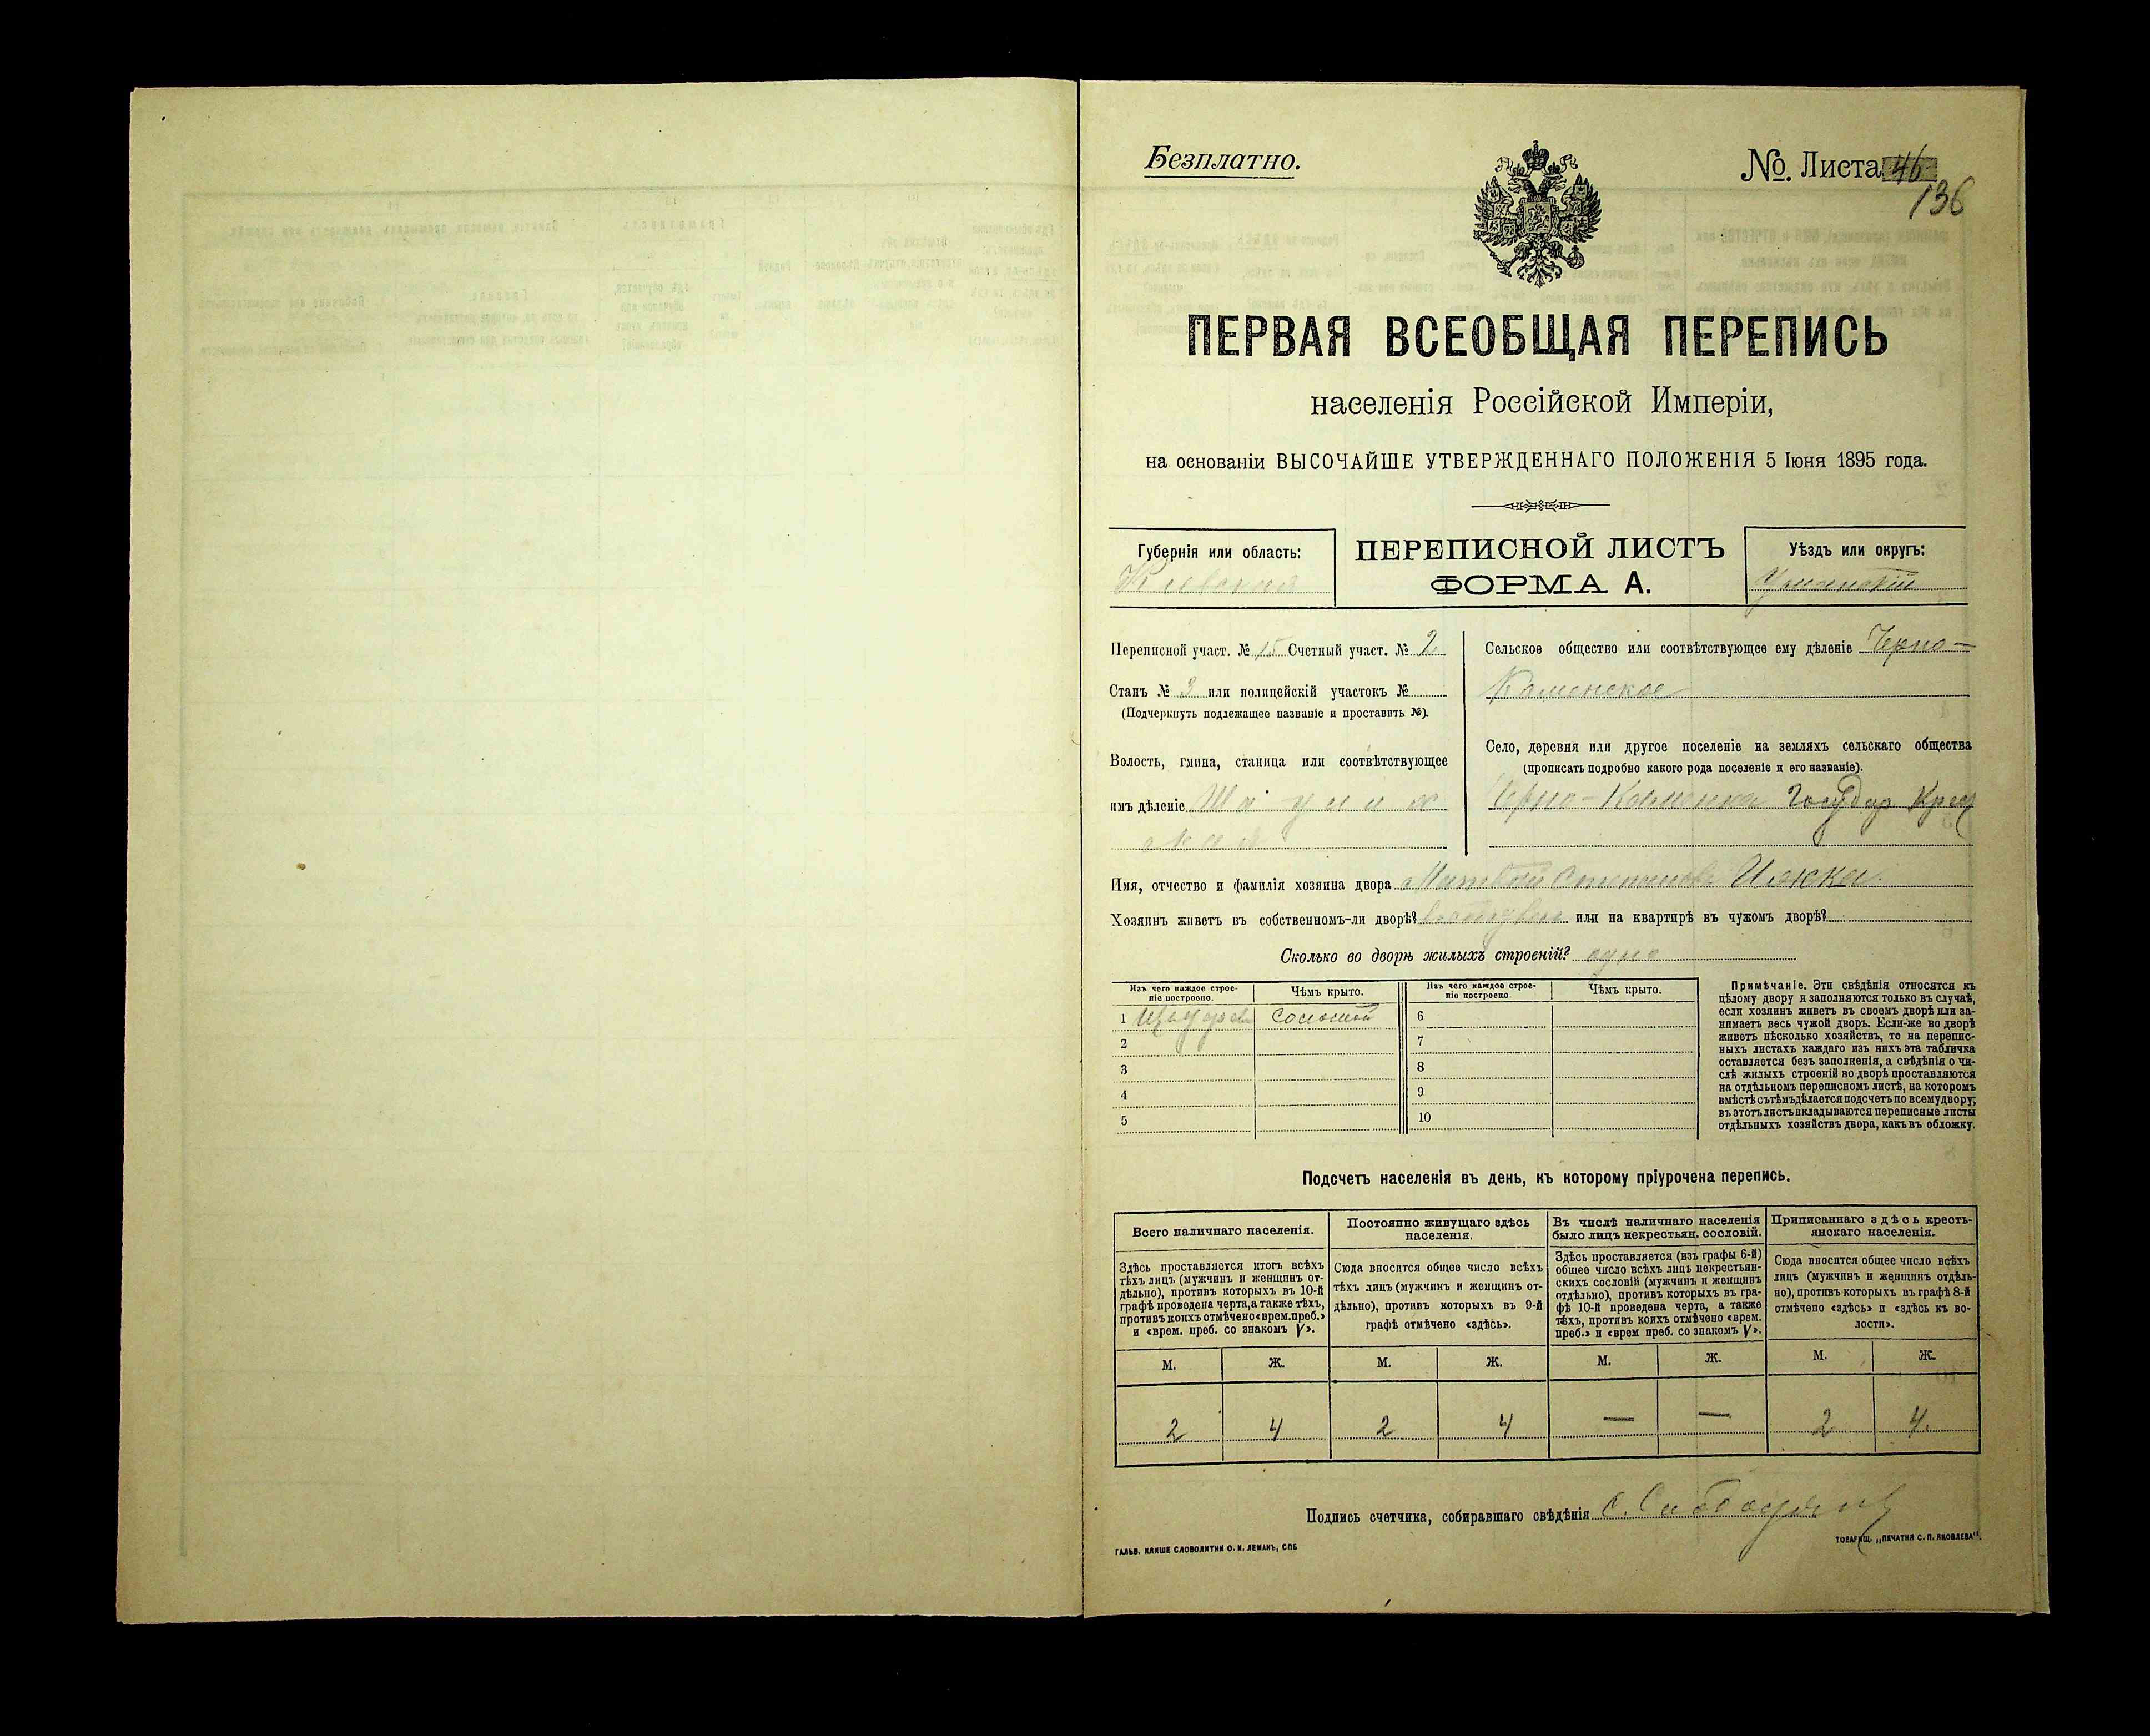 Безплатно.
№. Листа 46
136
ПЕРВАЯ ВСЕОБЩАЯ ПЕРЕПИСЬ
населенія Россійской Имперіи,
на основаніи ВЫСОЧАЙШЕ УТВЕРЖДЕННАГО ПОЛОЖЕНІЯ 5 Іюня 1895 года.
Губернія или область:
Кіевская
ПЕРЕПИСНОЙ ЛИСТЪ
ФОРМА А.
Уѣздъ или округъ:
Уманскій
Переписной участ. № 15 Счетный участ. № 2
Станъ № 3 или полицейскій участокъ №
(Подчеркнуть подлежащее названіе и проставить №).
Волость, гмина, станица или соотвѣтствующее
имъ дѣленіе
Сельское общество или соотвѣтствующее ему дѣленіе Черно-
Каменское
Село, деревня или другое поселеніе на земляхъ сельскаго общества
(прописать подробно какого рода поселеніе и его названіе).
Черно-Каменка Государ. Крес
Имя, отчество и фамилія хозяина двора Матвѣй Степановъ
Хозяинъ живетъ въ собственномъ-ли дворѣ? или на квартирѣ въ чужомъ дворѣ?
Сколько во дворѣ жилыхъ строеній? одно
Изъ чего каждое строе-
ніе построено.
Чѣмъ крыто.
Изъ чего каждое строе-
ніе построено.
Чѣмъ крыто.
1 соломой
6
2
7
3
8
4
9
5
10
Примѣчаніе. Эти свѣдѣнія относятся къ
цѣлому двору и заполняются только въ случаѣ,
если хозяинъ живетъ въ своемъ дворѣ или за-
нимаетъ весь чужой дворъ. Если-же во дворѣ
живетъ нѣсколько хозяйствъ, то на перепис-
ныхъ листахъ каждаго изъ нихъ эта табличка
оставляется безъ заполненія, а свѣдѣнія о чи-
слѣ жилыхъ строеній во дворѣ проставляются
на отдѣльномъ переписномъ листѣ, на которомъ
вмѣстѣ съ тѣмъ дѣлается подсчетъ по всему двору;
въ этотъ листъ вкладываются переписные листы
отдѣльныхъ хозяйствъ двора, какъ въ обложку.
Подсчетъ населенія въ день, къ которому пріурочена перепись.
Всего наличнаго населенія.
Здѣсь проставляется итогъ всѣхъ
тѣхъ лицъ (мужчинъ и женщинъ от-
дѣльно), противъ которыхъ въ 10-й
графѣ проведена черта, а также тѣхъ,
противъ коихъ отмѣчено «врем. преб.»
и «врем. преб. со знакомъ V».
Постоянно живущаго здѣсь
населенія.
Сюда вносится общее число всѣхъ
тѣхъ лицъ (мужчинъ и женщинъ от-
дѣльно), противъ которыхъ въ 9-й
графѣ отмѣчено «здѣсь».
Въ числѣ наличнаго населенія
было лицъ некрестьян. сословій.
Здѣсь проставляется (изъ графы 6-й)
общее число всѣхъ лицъ некрестьян-
скихъ сословій (мужчинъ и женщинъ
отдѣльно), противъ которыхъ въ гра-
фѣ 10-й проведена черта, а также
тѣхъ, противъ коихъ отмѣчено «врем.
преб.» и «врем преб. со знакомъ V».
Приписаннаго здѣсь кресть-
янскаго населенія.
Сюда вносится общее число всѣхъ
лицъ (мужчинъ и женщинъ отдѣль-
но), противъ которыхъ въ графѣ 8-й
отмѣчено «здѣсь» и «здѣсь къ во-
лости».
М. Ж. М. Ж. М. Ж. М. Ж.
2 4 2 4 — — 2 4
Подпись счетчика, собиравшаго свѣдѣнія
ГАЛЬВ. КЛИШЕ СЛОВОЛИТНИ О. И. ЛЕМАНЪ, СПБ
ТОВАРИЩ. „ПЕЧАТНЯ С. П. ЯКОВЛЕВА".